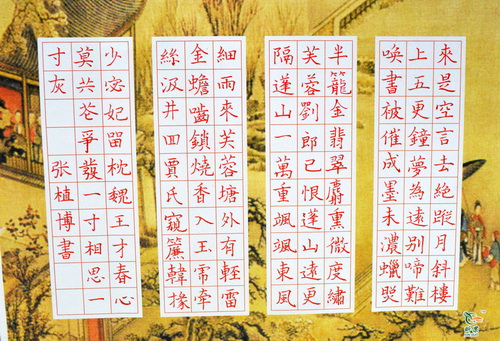 來是空言去絶蹤月斜樓
上五更鐘夢為遠别啼難
喚書被催成墨未濃蠟照
半籠金翡翠麝熏微度繡
芙蓉劉郎已恨蓬山遠更
隔蓬山一萬重颯颯東風
細雨來芙蓉塘外有輕雷
金蟾嚙鎖燒香入王虎牽
絲汲井回賈氏窺簾韓掾
少宓妃留枕魏王才春心
莫共花爭發一寸相思一
寸灰
张植博書